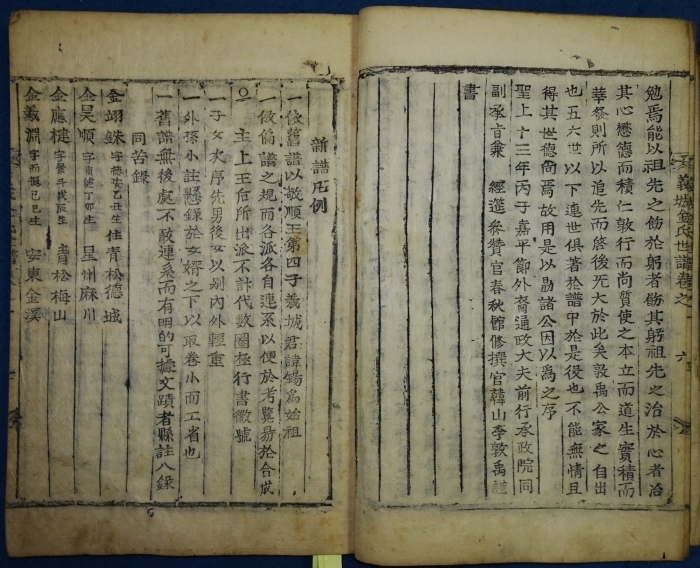 勉焉能以祖先之飭於躬者飭其躬祖先之治於心者治
其心懋德而積仁敦行而尚質使之本立而道生實積而
華發則所以追先而啓後无大於此矣敦禹公家之自出
也五六世以下連世俱著於譜中於是役也不能無情且
得其世德尙焉故用是以勖諸公因以為之序
聖上十三年丙子嘉平節外裔通政大夫前行承政院同
副承旨兼 經筵參贊官春秋館修撰官韓山李敦禹謹
書
義城金氏世譜卷之一 六
新譜凡例
一倣舊譜以敬順王第四子義城君諱錫為始祖
一倣僞譜之規而各派各自連系以便於考覽易於合成
○主上王后所出派不計代數圈極行書徽號
一子女次序先男後女以别內外輕重
一外孫小註懸錄於女婿之下以取卷小而工省也
一舊譜無後處不敢連系而有明的可據文蹟者縣註入錄
同苦錄
金翊銖 字 乙丑生 住青松德城
金昊順 字 丁卯生 星州麻川
金應楗 字 戊辰生 青松梅山
金羲淵 字 己巳生 安東金溪